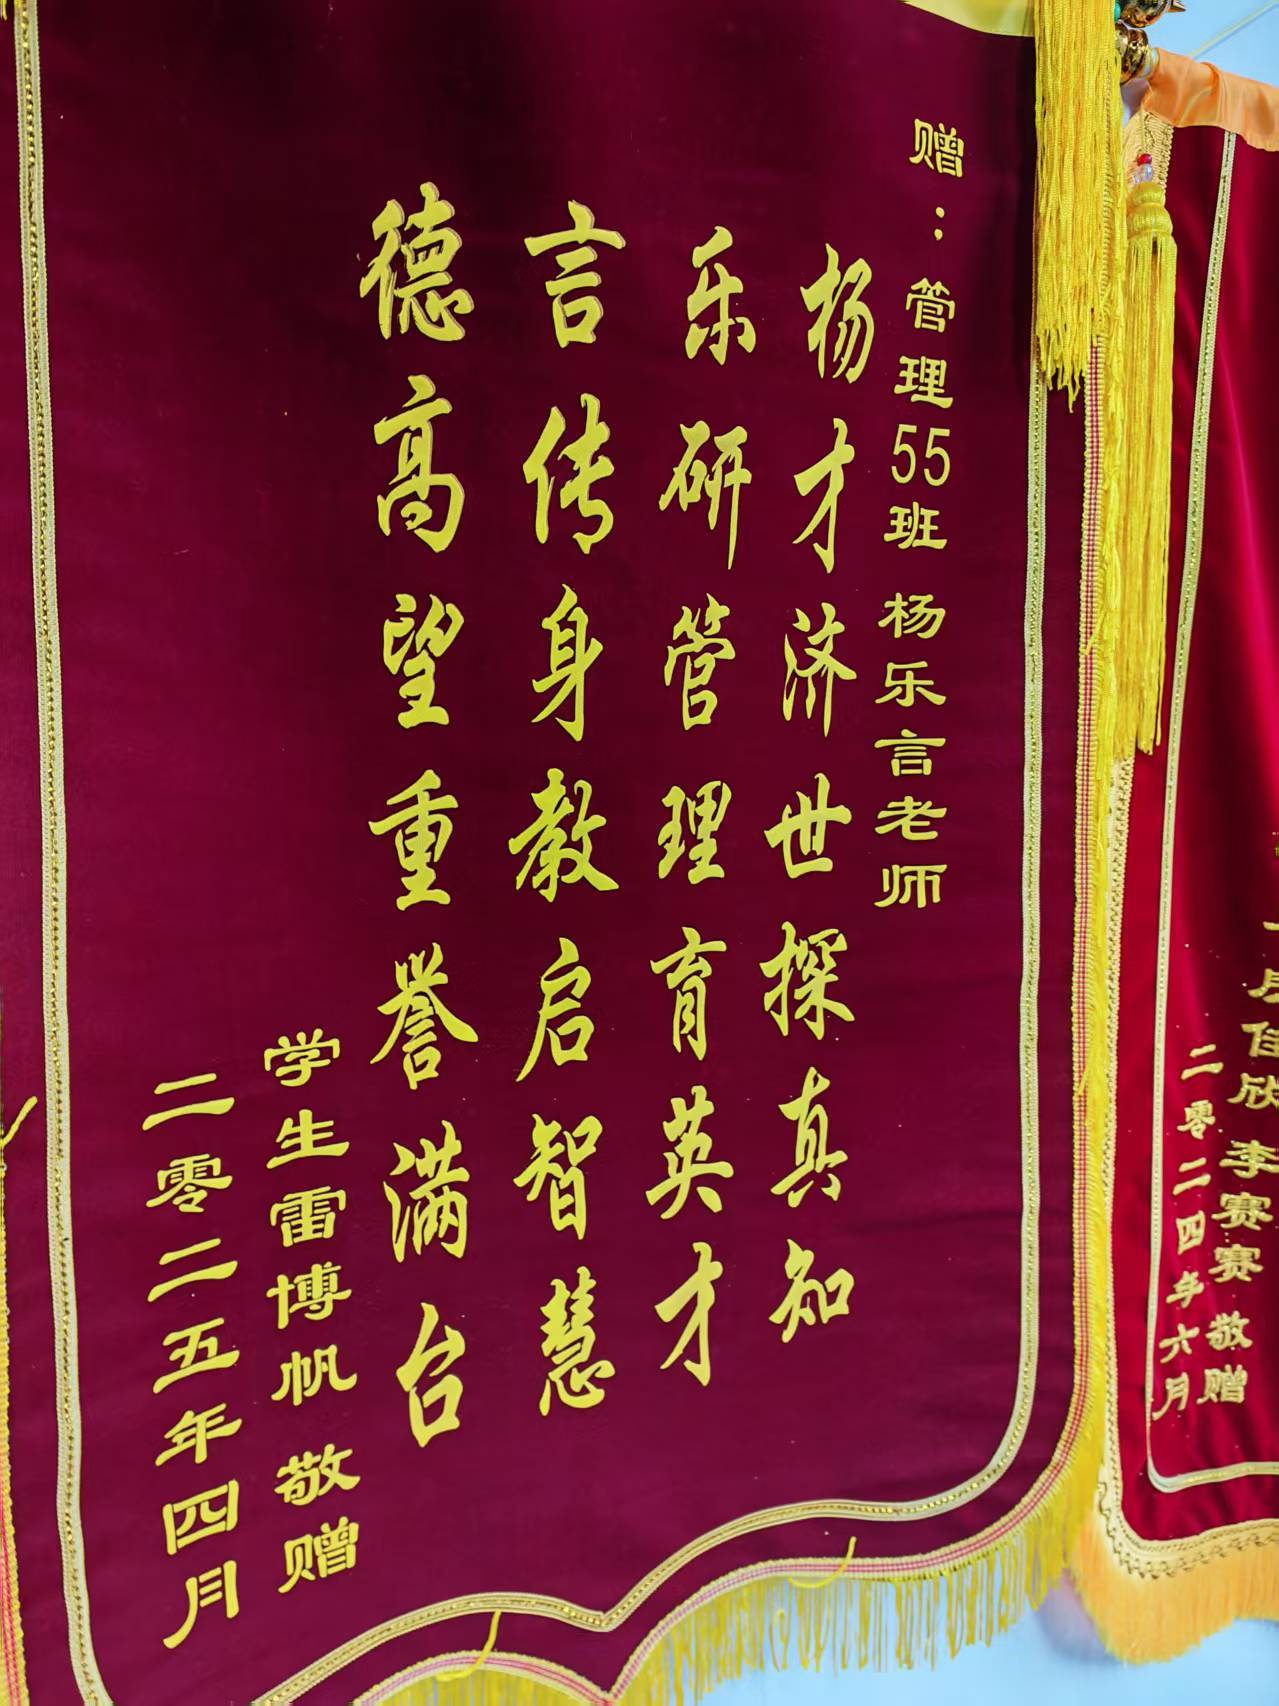 赠：管理55班 杨乐言老师
杨才济世探真知
乐研管理育英才
言传身教启智慧
德高望重誉满台
学生雷博帆 敬赠
二零二五年四月
佳欣 李赛赛 敬赠
二零二四年六月